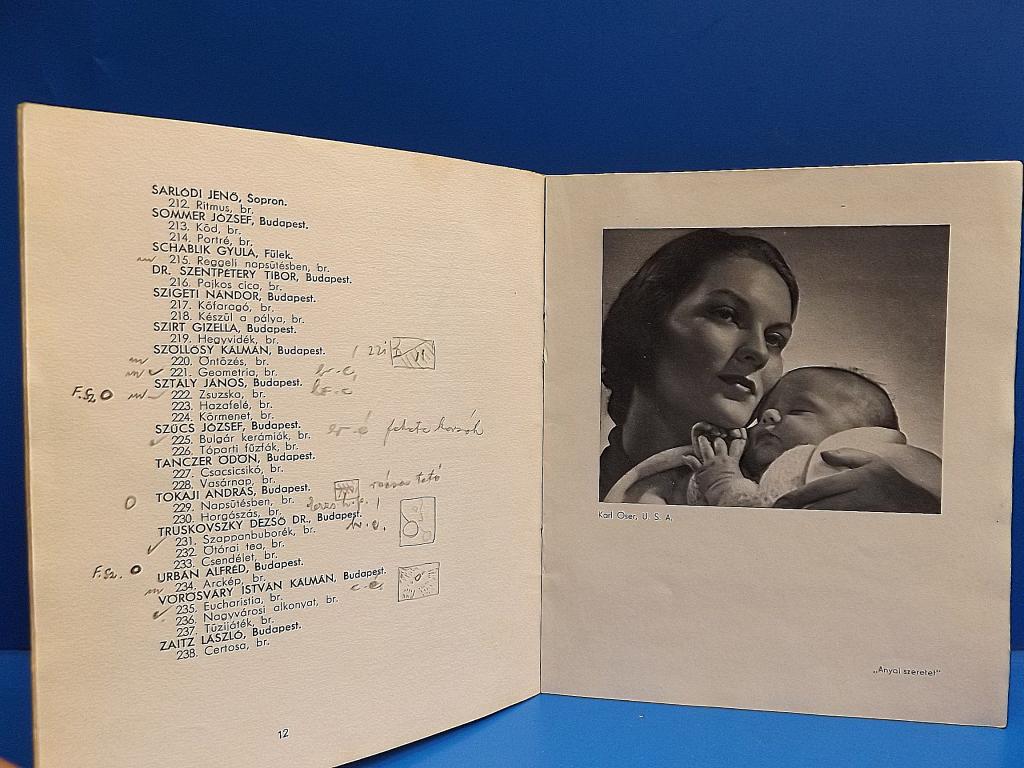 SARLÓDI JENŐ, Sopron.
212. Ritmus, br.
SOMMER JÓZSEF, Budapest.
213. Köd, br.
214. Portré, br.
SCHABLIK GYULA, Fülek.
215. Reggeli napsütésben, br.
DR. SZENTPÉTERY TIBOR, Budapest.
216. Pajkos cica, br.
SZIGETI NÁNDOR, Budapest.
217. Kőfaragó, br.
218. Készül a pálya, br.
SZIRT GIZELLA, Budapest.
219. Hegyvidék, br.
SZÖLLŐSY KÁLMÁN, Budapest.
220. Öntözés, br.
221. Geometria, br.
SZTÁLY JÁNOS, Budapest.
F. Sz. 222. Zsuzska, br.
223. Hazafelé, br.
224. Körmenet, br.
SZŰCS JÓZSEF, Budapest.
225. Bulgár kerámiák, br. fekete korsók
226. Tóparti fűzfák, br.
TANCZER ÖDÖN, Budapest.
227. Csacsicsikó, br.
228. Vasárnap, br.
TOKAJI ANDRÁS, Budapest.
229. Napsütésben, br.
230. Horgászás, br.
TRUSKOVSZKY DEZSŐ DR., Budapest.
231. Szappanbuborék, br.
232. Ötórai tea, br.
233. Csendélet, br.
F. Sz. URBÁN ALFRÉD, Budapest.
234. Arckép, br.
VÖRÖSVÁRY ISTVÁN KÁLMÁN, Budapest.
235. Eucharistia, br.
236. Nagyvárosi alkonyat, br.
237. Tüzijáték, br.
ZAITZ LÁSZLÓ, Budapest.
238. Certosa, br.
12
Karl Oser, U. S. A.
„Anyai szeretet"